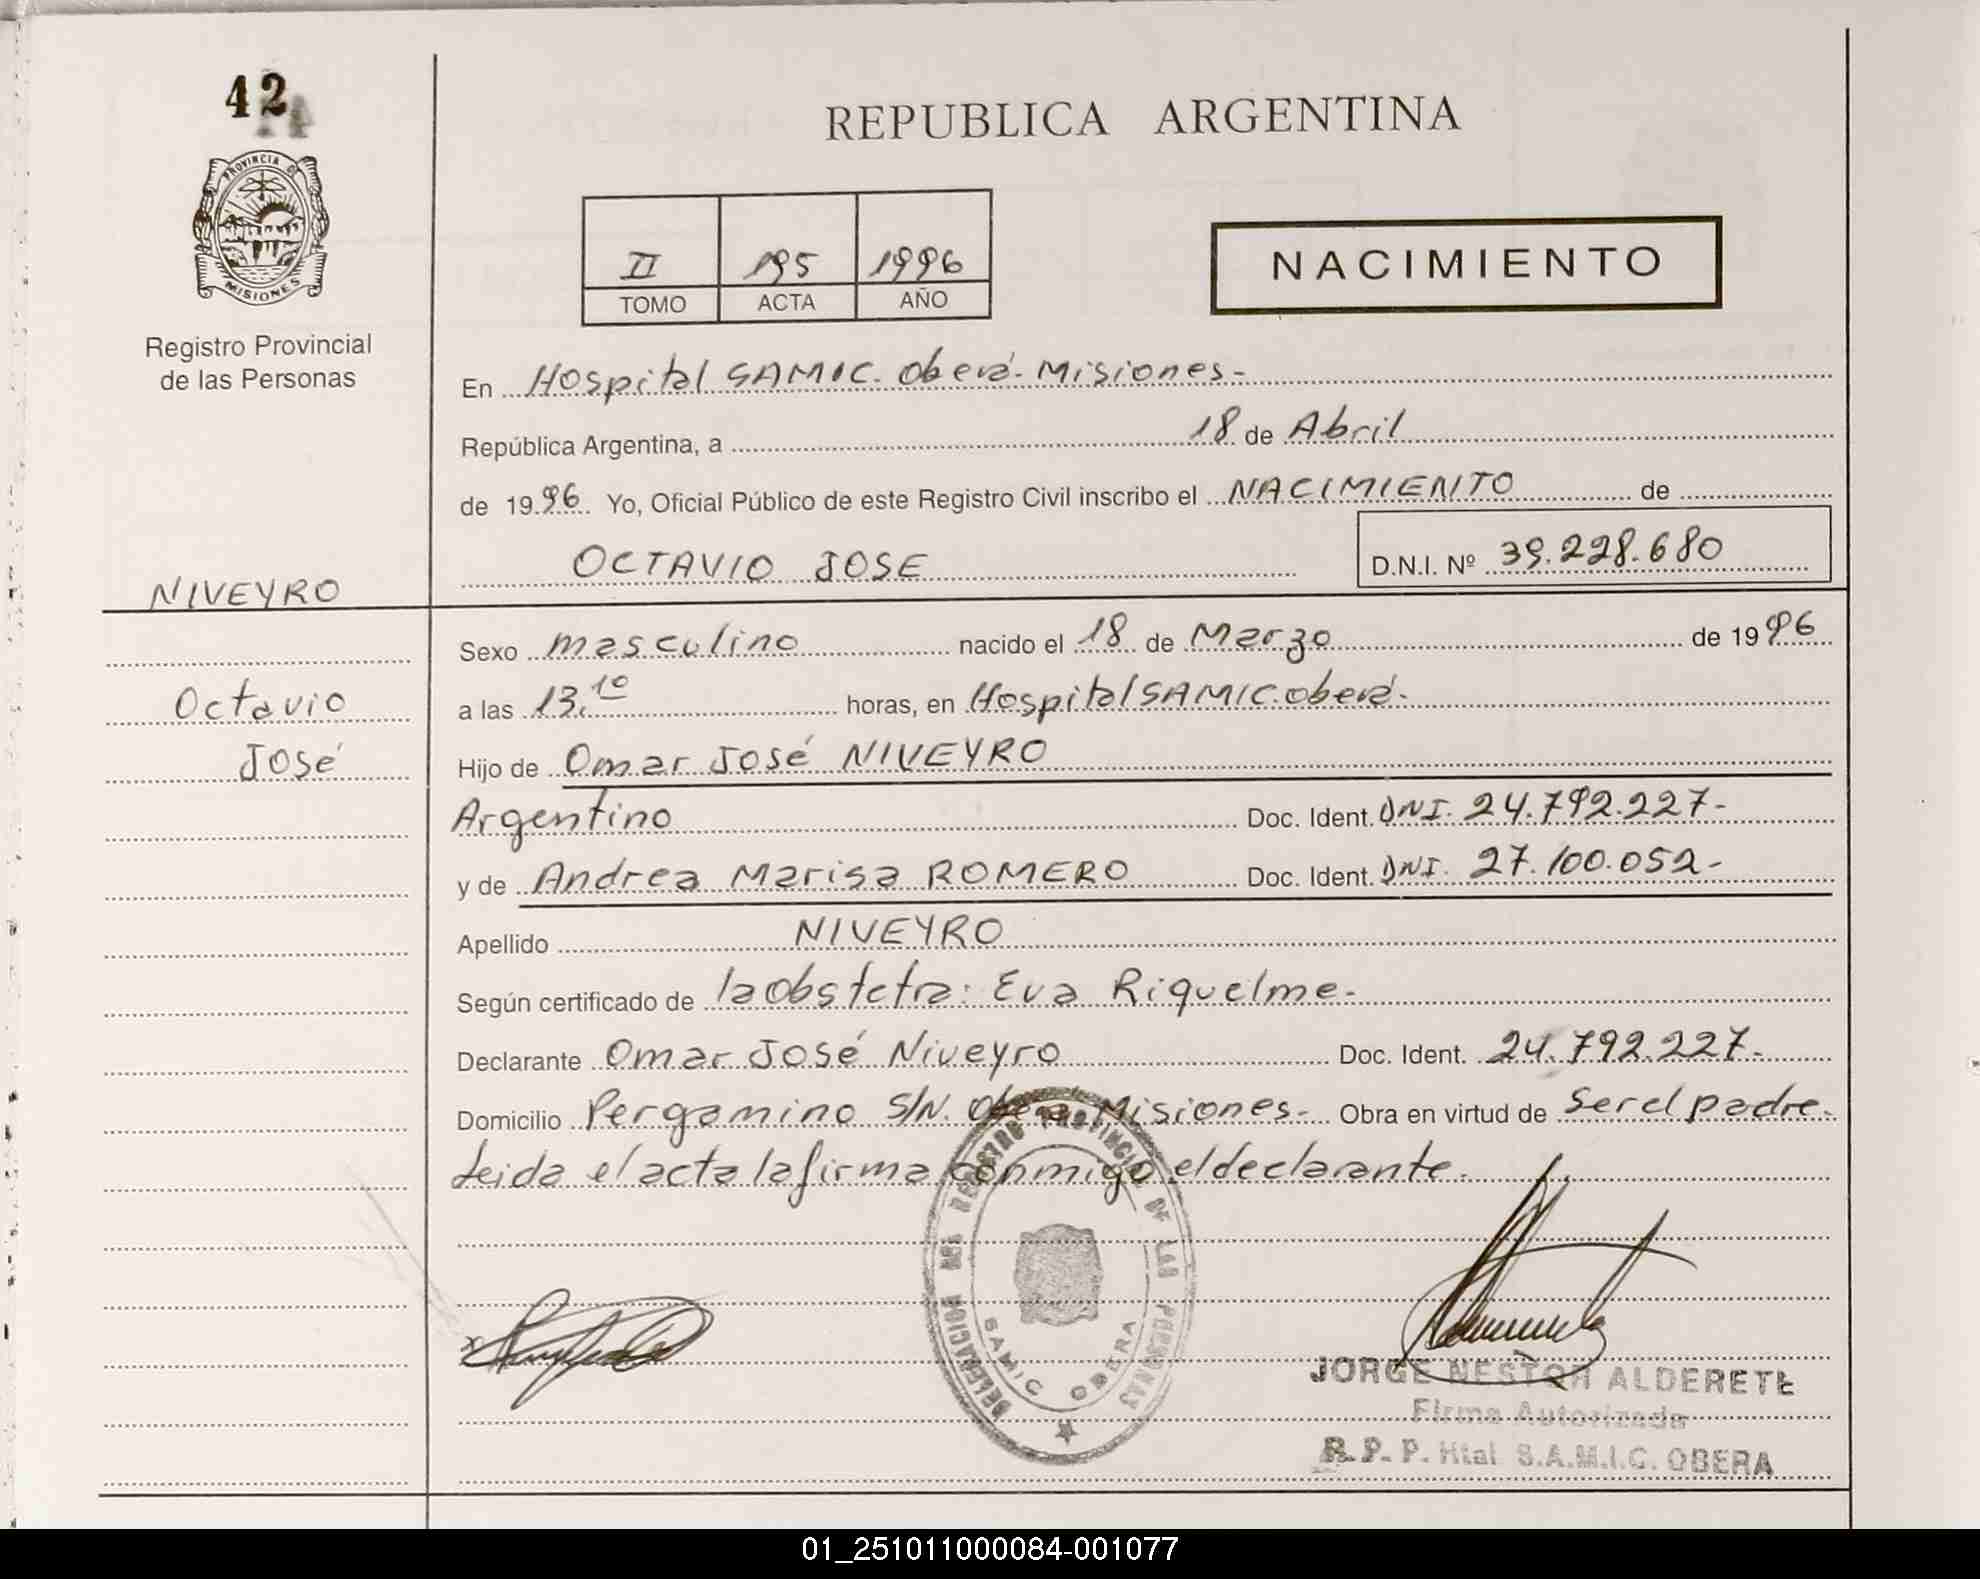 42
PROVINCIA DE
MISIONES
Registro Provincial
de las Personas
NIVEYRO
Octavio
José
REPUBLICA ARGENTINA
II 195 1996
TOMO ACTA AÑO
NACIMIENTO
En Hospital SAMIC. Oberá. Misiones-
República Argentina, a 18 de Abril
de 1996. Yo, Oficial Público de este Registro Civil inscribo el NACIMIENTO de
OCTAVIO JOSE D.N.I. Nº 39.228.680
Sexo masculino nacido el 18 de Marzo de 1996
a las 13.10 horas, en Hospital SAMIC. Oberá.
Hijo de Omar José NIVEYRO
Argentino Doc. Ident. DNI. 24.792.227-
y de Andrea Marisa ROMERO Doc. Ident. DNI. 27.100.052-
Apellido NIVEYRO
Según certificado de la obstetra: Eva Riquelme.
Declarante Omar José Niveyro Doc. Ident. 24.792.227-
Domicilio Pergamino S/N. Oberá Misiones- Obra en virtud de ser el padre.
Leida el acta la firma conmigo el declarante.
DELEGACION DEL REGISTRO PROVINCIAL DE LAS PERSONAS
SAMIC OBERA
JORGE NESTOR ALDERETE
Firma Autorizada
R. P. P. Htal S.A.M.I.C. OBERA
01_251011000084-001077